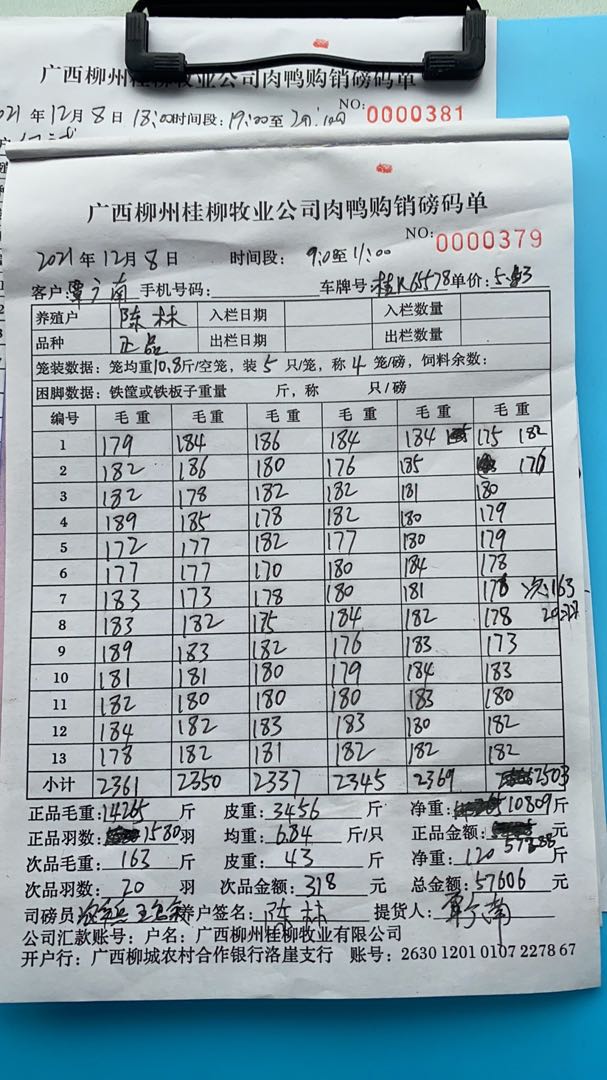 广西柳州桂柳牧业公司肉鸭购销磅码单
2021年12月8日 18:00时间段:19:00至
NO: 0000381
广西柳州桂柳牧业公司肉鸭购销磅码单
NO: 0000379
2021年12月8日 时间段: 9:0至11:00
客户:覃宁南 手机号码: 车牌号:桂R65578 单价:
养殖户 陈林 入栏日期 入栏数量
品种 正品 出栏日期 出栏数量
笼装数据: 笼均重10.8斤/空笼, 装5只/笼, 称4笼/磅, 饲料余数:
困脚数据: 铁筐或铁板子重量 斤, 称 只/磅
编号 毛重 毛重 毛重 毛重 毛重 毛重
1 179 184 186 184 184 175 182
2 182 186 180 176 185 176
3 182 178 182 182 181 180
4 189 185 178 182 180 179
5 172 177 182 177 180 179
6 177 177 170 180 184 178
7 183 173 178 180 181 178 次:163
8 183 182 175 184 182 178
9 189 183 182 176 183 173
10 181 181 180 179 184 183
11 182 180 180 180 183 180
12 184 182 183 183 180 182
13 178 182 181 182 182 182
小计 2361 2350 2337 2345 2369 2503
正品毛重:14265斤 皮重:3456斤 净重:10809斤
正品羽数:1580羽 均重:6.84斤/只 正品金额:57288元
次品毛重:163斤 皮重:43斤 净重:120斤
次品羽数:20羽 次品金额:318元 总金额:57606元
司磅员: 养户签名:陈林 提货人:覃宁南
公司汇款账号: 户名: 广西柳州桂柳牧业有限公司
开户行: 广西柳城农村合作银行洛崖支行 账号: 2630 1201 0107 2278 67